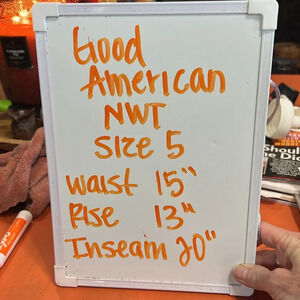 Good
American
NWT
Size 5
Waist 15"
Rise 13"
Inseam 20"
Shoul
he Di